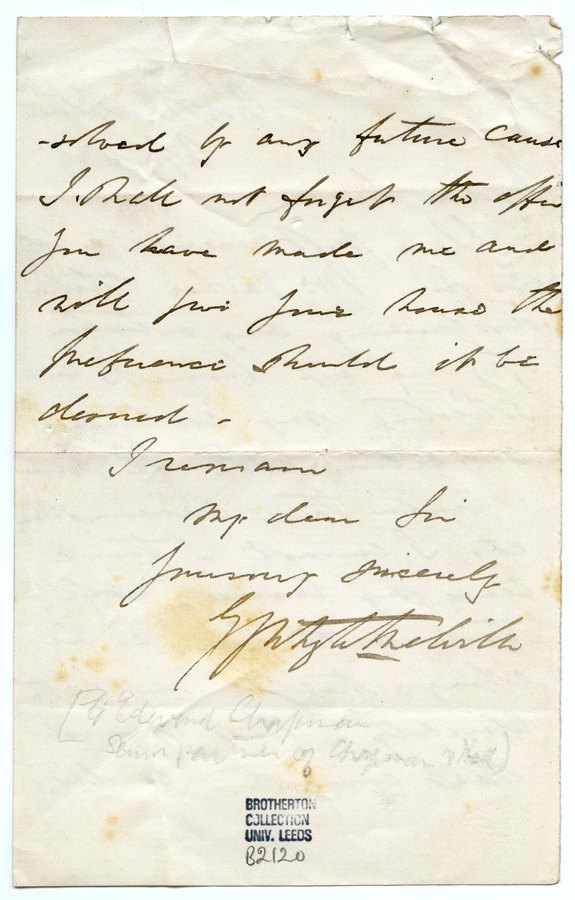 -solved by any future cause
I shall not forget the offer
you have made me and
will give your house the
preference should it be
desired -
I remain
My dear Sir
yours very sincerely
G J Whyte Melville
[To Edward Chapman
Senior partner of Chapman & Hall]
BROTHERTON
COLLECTION
UNIV. LEEDS
B2120